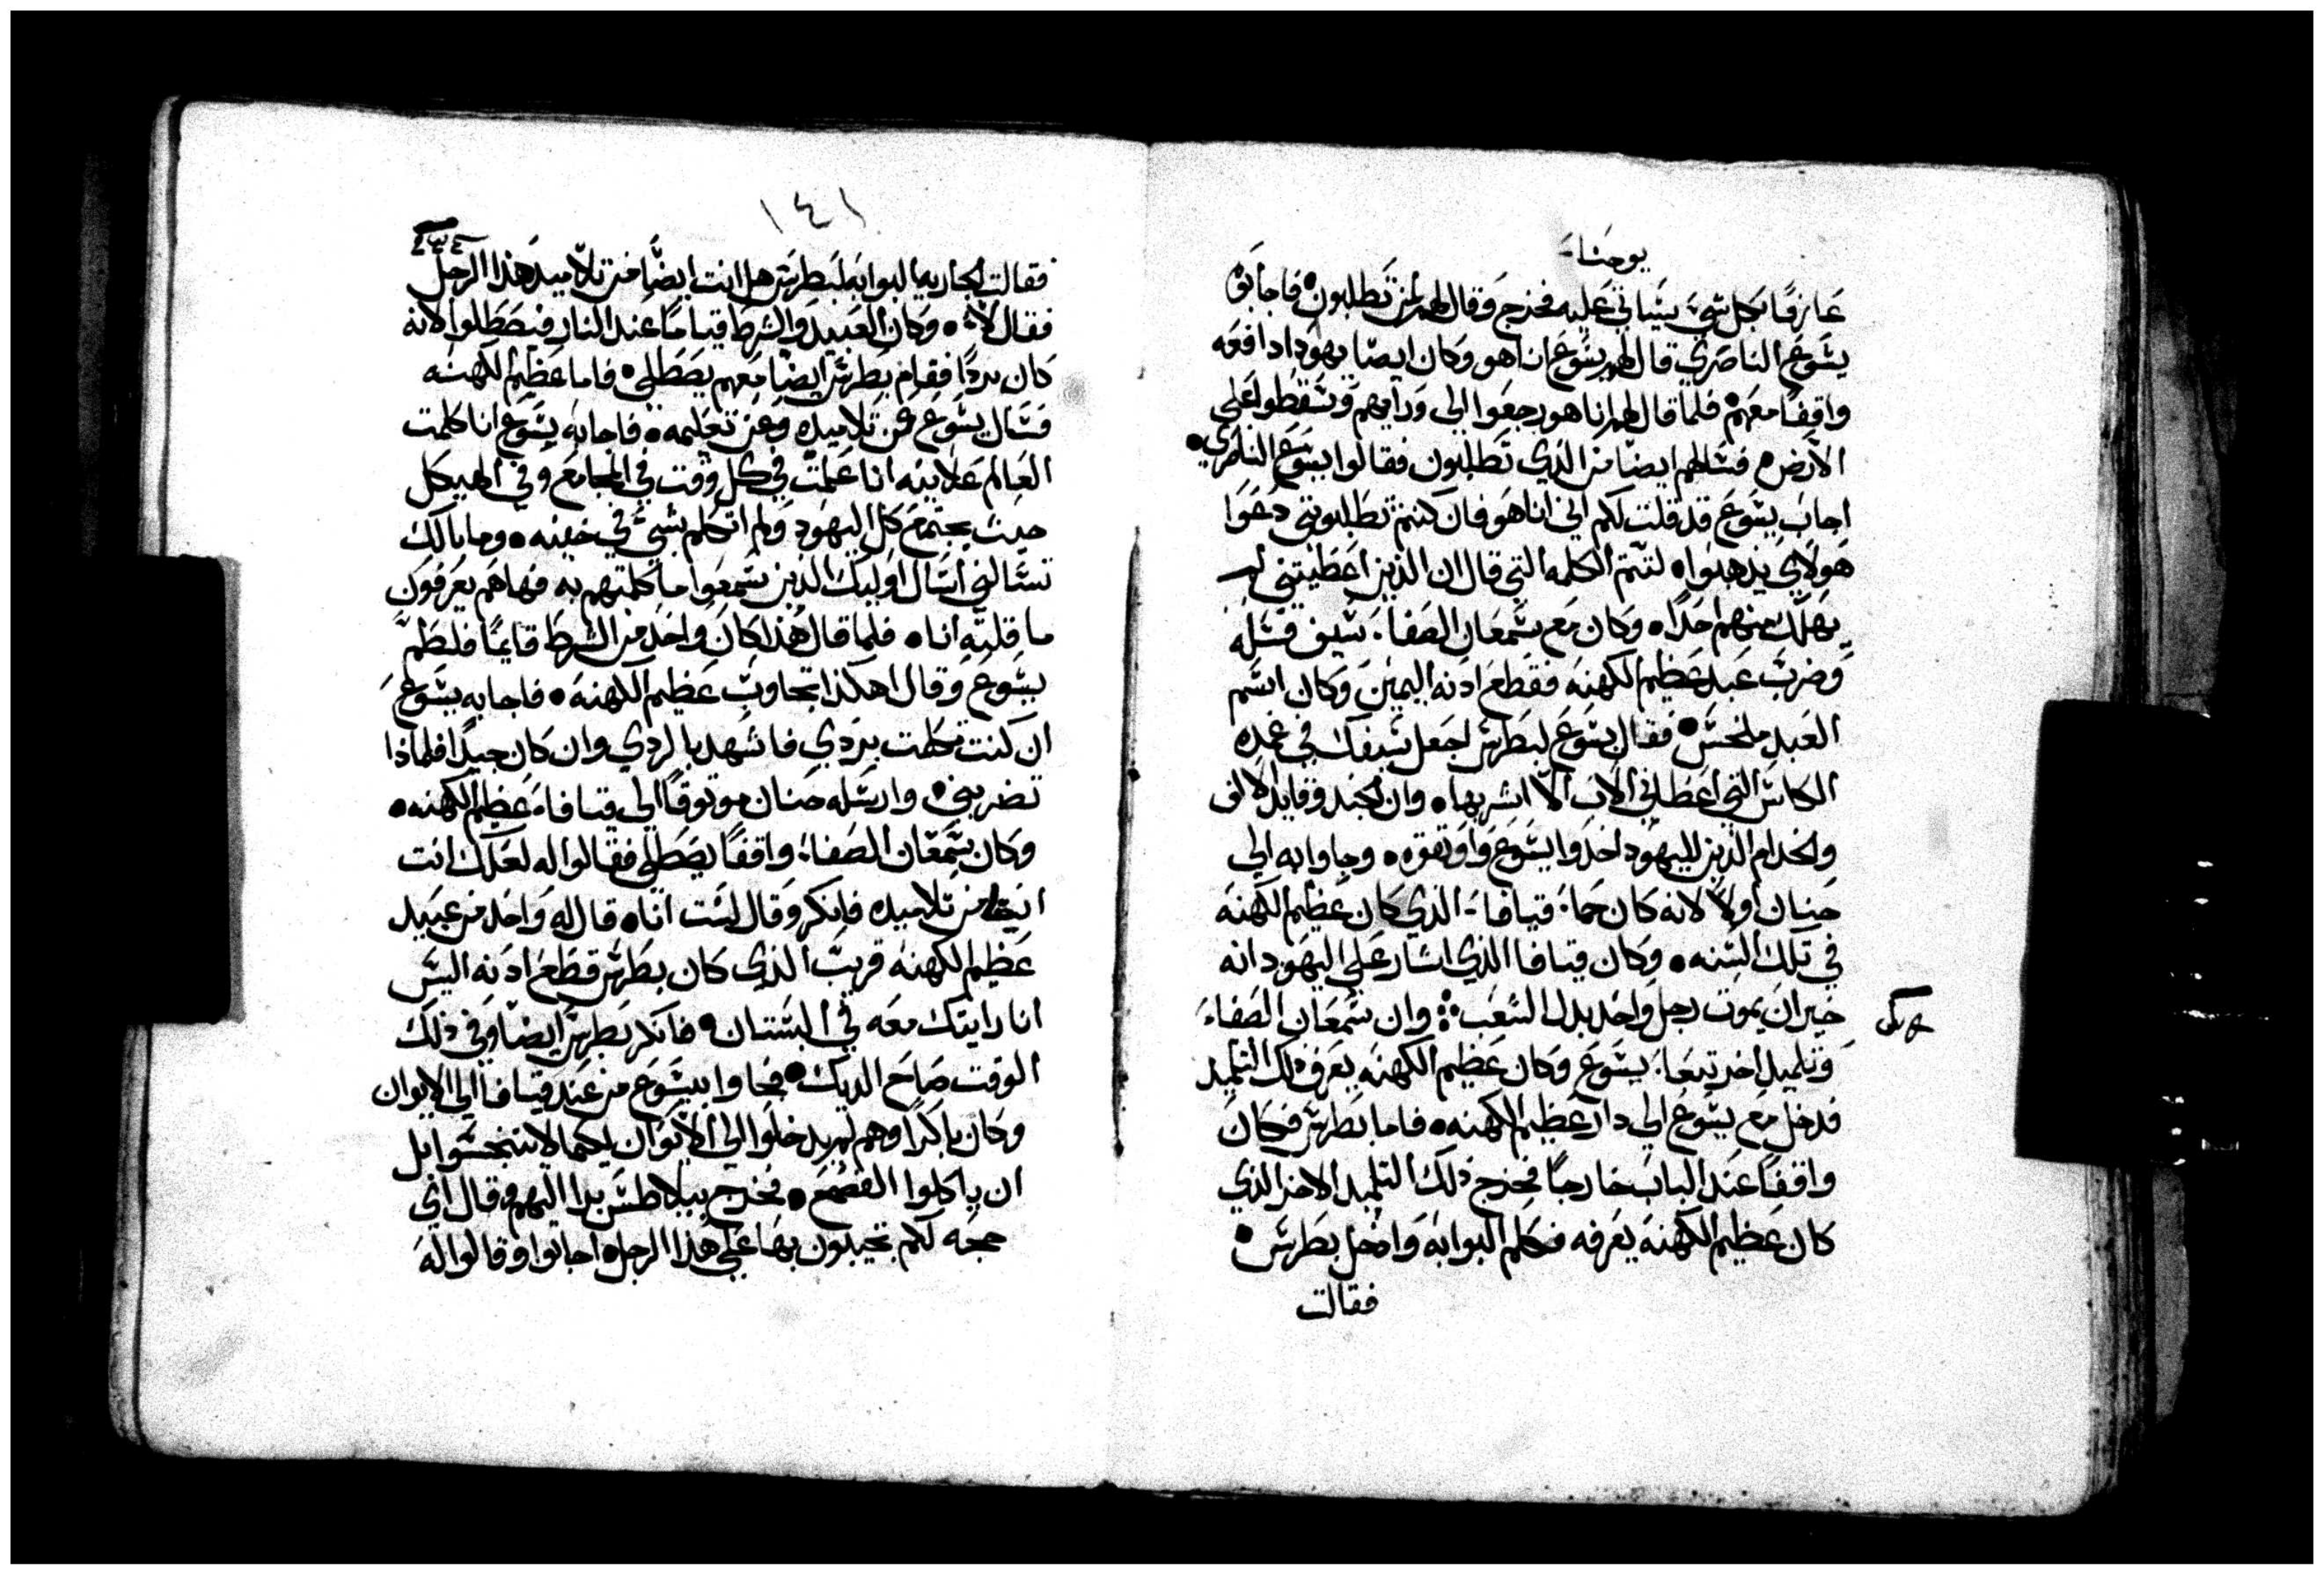 يوحنا
عارفًا بكل شي يتاتي عليه فخرج وقال لهم لمن تطلبون فاجابوه
يشوع الناصري قال لهم يشوع انا هو وكان ايضا يهودا دافعه
واقفًا معهم فلما قال لهم انا هو رجعوا الي ورايهم وشقطوا علي
الارض فسالهم ايضا من الذي تطلبون فقالوا يشوع الناصري
اجاب يشوع قد قلت لكم اني انا هو فان كنتم تطلبونني دعوا
هولاي يذهبوا لتتم الكلمه التي قال ان الذين اعطيتني لم
يهلك منهم احدا وكان مع شمعان الصفا سيف فسله
وضرب عبد عظيم الكهنه فقطع ادنه اليمين وكان اسم
العبد ملخس فقال يشوع لبطرس اجعل سيفك في غمده
الكاس التي اعطاني الاب الا اشربها وان الجند وقايد الالف
والخدام الذين لليهود اخدوا يشوع واوثقوه وجاوا به الي
حنان اولا لانه كان حما قيافا الذي كان عظيم الكهنه
في تلك السنه وكان قيافا الذي اشار علي اليهود انه
خير ان يموت رجل واحد بدل الشعب وان شمعان الصفا
وتلميد اخر تبعا يشوع وكان عظيم الكهنه يعرف ذلك التلميد
فدخل مع يشوع الي دار عظيم الكهنه فاما بطرس فكان
واقفا عند الباب خارجا فخرج ذلك التلميد الاخر الذي
كان عظيم الكهنه يعرفه فكلم البوابه وادخل بطرس
فقالت
١٤١
فقالت الجاريه البوابه لبطرس هل انت ايضا من تلاميد هذا الرجل
فقال لا وكان العبيد والشرط قياما عند النار فيصطلوا لانه
كان بردا فقام بطرس ايضا معهم يصطلي فاما عظيم الكهنه
فسال يشوع عن تلاميده وعن تعليمه فاجابه يشوع انا كلمت
العالم علانيه انا علمت في كل وقت في المجامع وفي الهيكل
حيث يجتمع كل اليهود ولم اتكلم بشي في خفيه وما بالك
تسالني اسال اوليك الذين سمعوا ما كلمتهم به فها هم يعرفون
ما قلته انا فلما قال هذا كان واحد من الشرط قايما فلطم
يشوع وقال اهكذا تجاوب عظيم الكهنه فاجابه يشوع
ان كنت تكلمت بردي فاشهد بالردي وان كان جيدا فلماذا
تضربني وارسله حنان موتوقا الي قيافا عظيم الكهنه
وكان شمعان الصفا واقفا يصطلي فقالوا له لعلك انت
ايضا من تلاميده فانكر وقال لست انا قال له واحد من عبيد
عظيم الكهنه قريب الذي كان بطرس قطع ادنه اليس
انا رايتك معه في البستان فانكر بطرس ايضا وفي ذلك
الوقت صاح الديك فجاوا بيشوع من عند قيافا الي الايوان
وكان باكرا وهم لم يدخلوا الي الايوان لكيما لا يتنجسوا بل
ان ياكلوا الفصح فخرج بيلاطس برا اليهم وقال اي
حجه لكم تجيبون بها علي هذا الرجل اجابوا وقالوا له